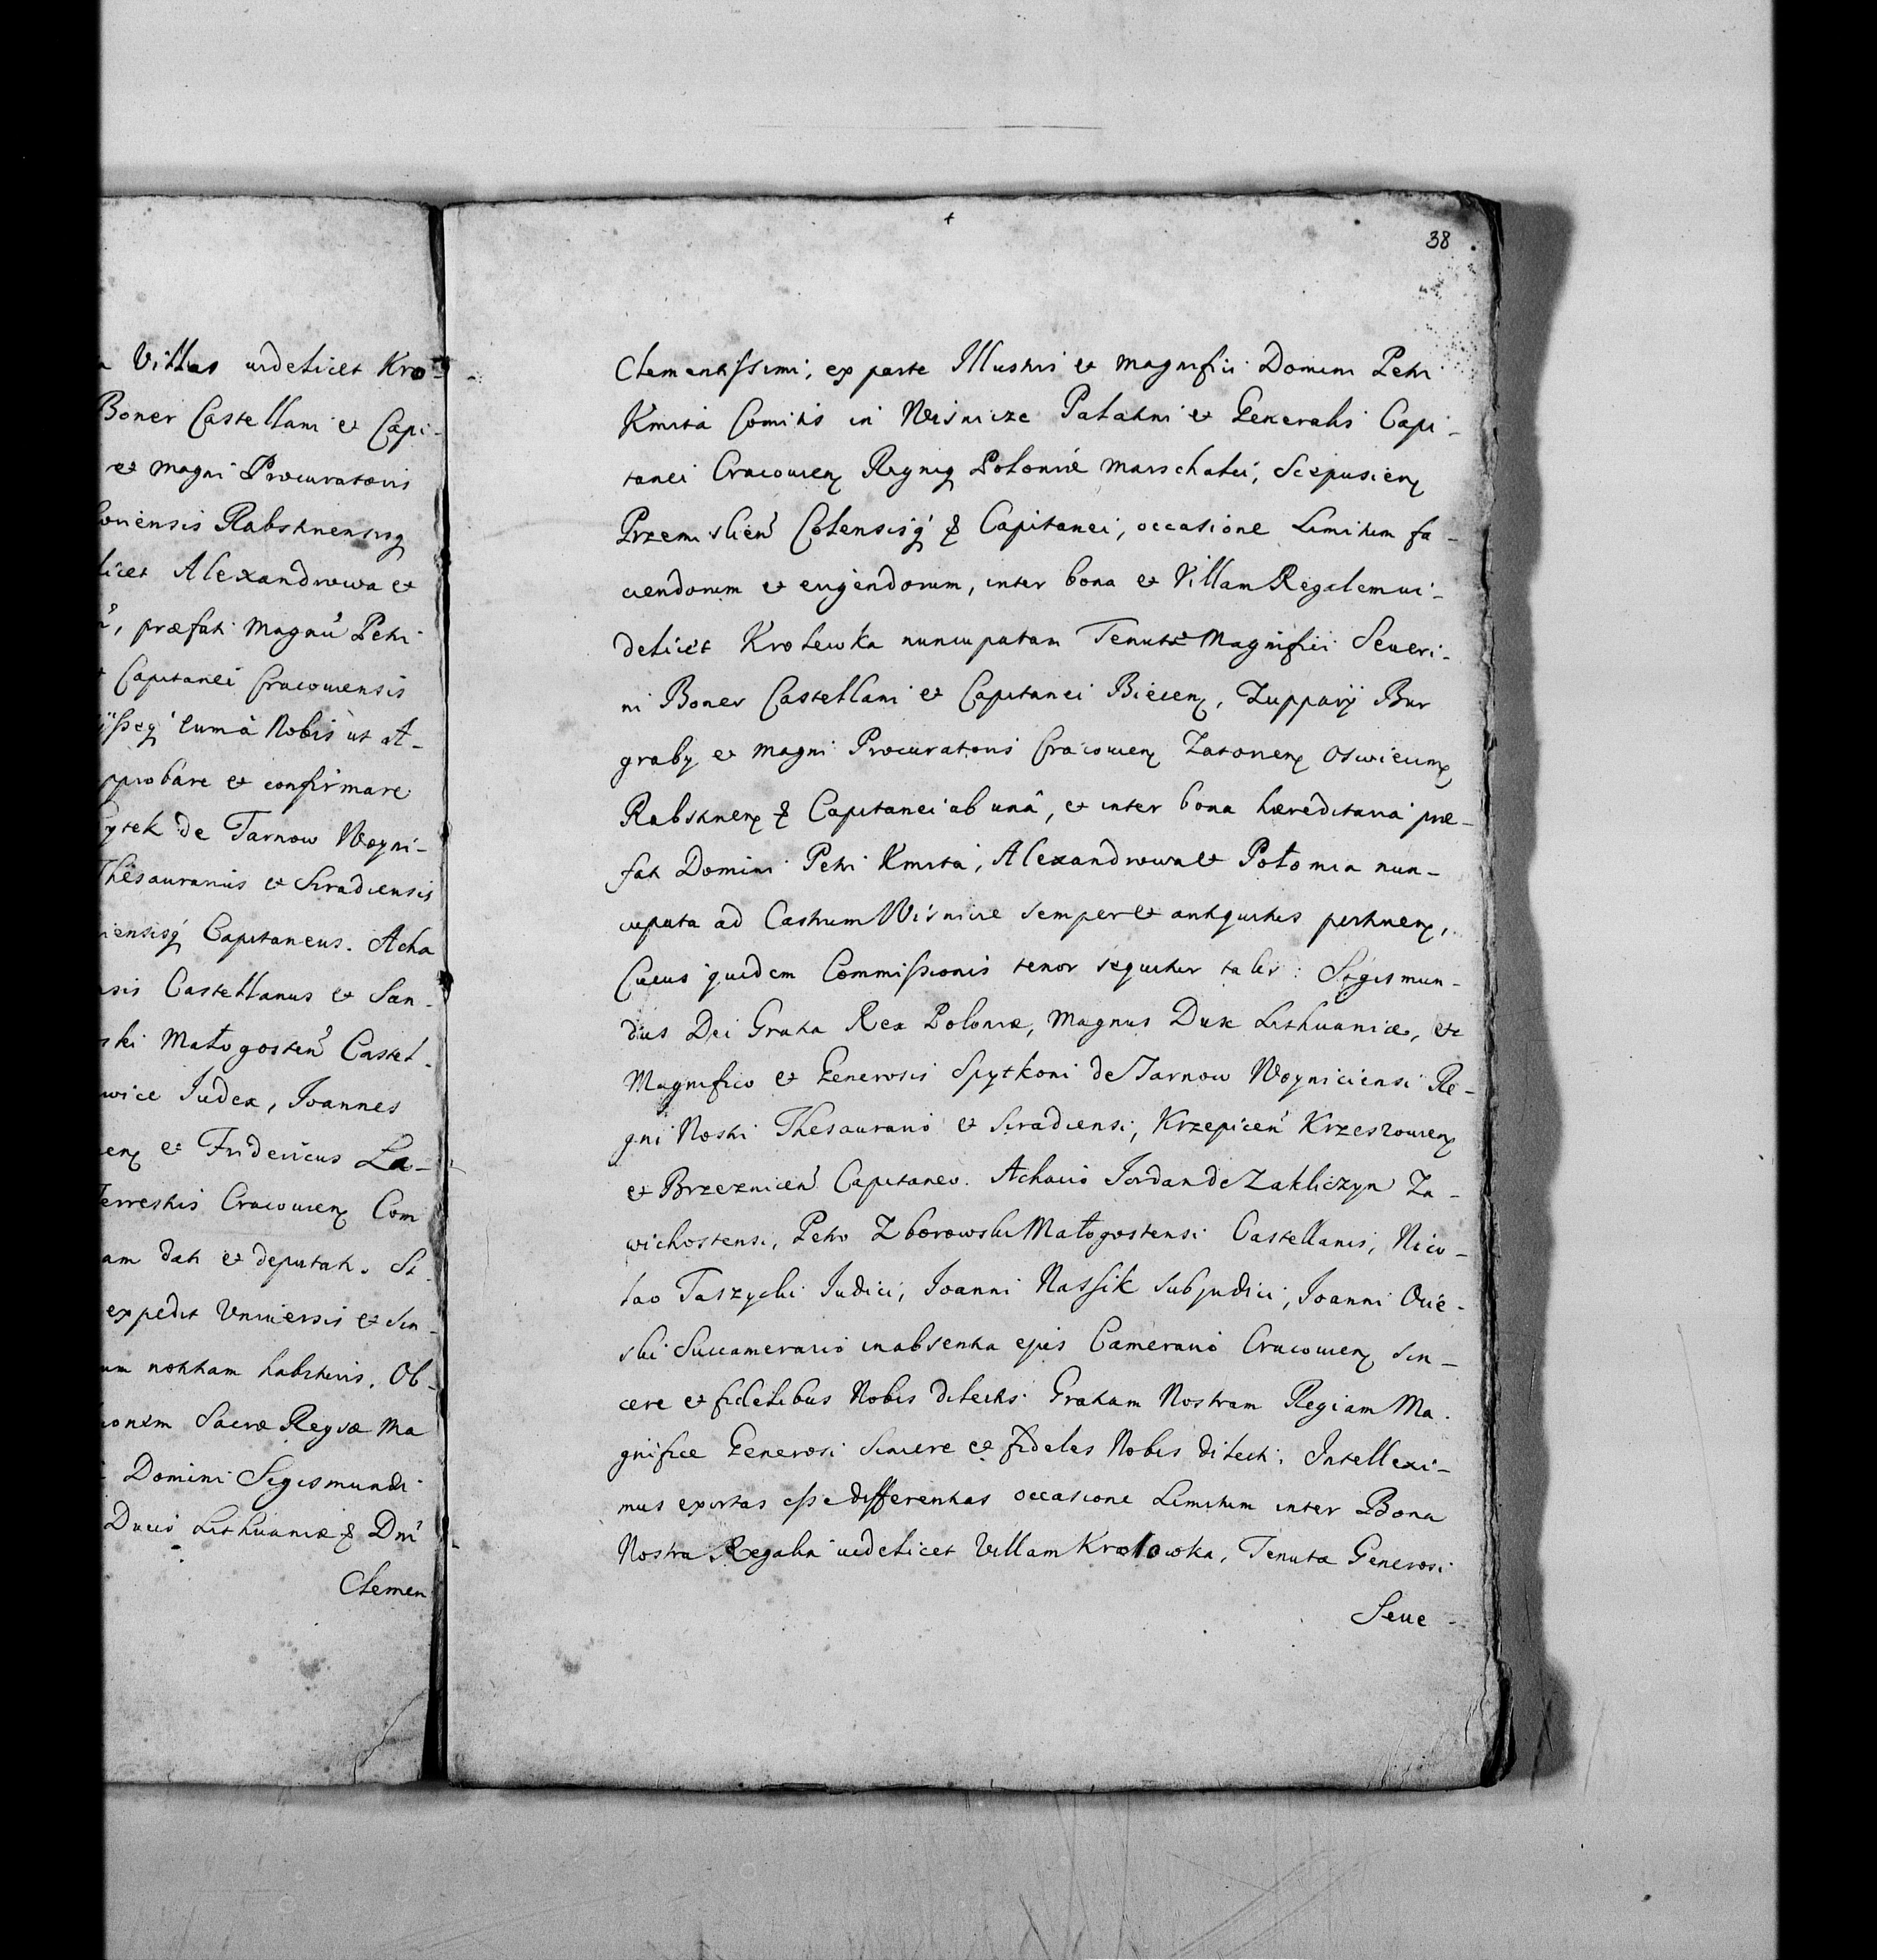 a Villas videlicet Kro-
Boner Castellani et Capi-
et Magni Procuratoris
Rabsthnensisq
licet Alexandrowa et
præfati Magn̄ Petri
Capitanei Cracoviensis
a Nobis ut A-
pprobare et confirmare
ytek de Tarnow Woyni-
Thesaurarius et Siradiensis
iensisq́ Capitaneus. Acha
sis Castellanus et San-
ski Małogosten̄ Castel-
wice Iudex, Ioannes
et Fridericus La-
Terrestris Cracovien Com
am dati et deputati. Si
expedit Universis et Sin-
um notitiam habituris. Ob-
ionem Sacræ Regiæ Ma
Domini Sigismundi
Ducis Lithuaniæ & Dnī
Clemen
38
Clementissimi, ex parte Illustris et Magnifici Domini Petri
Kmita Comitis in Wisnicze Palatini et Generalis Capi-
tanei Cracovien Regniq Poloniæ Marschalci, Scepusien
Przemislien̄ Colensisq́ & Capitanei, occasione Limitum fa-
ciendorum et erigendorum, inter bona et Villam Regalem vi-
delicet Krolewka nuncupatam Tenutæ Magnifici Severi-
ni Boner Castellani et Capitanei Biecen, Zupparij Bur
graby et Magni Procuratoris Cracovien Zatorien Oswiecimen
Rabsthnen & Capitanei ab una, et inter bona hæreditaria præ-
fati Domini Petri Kmita, Alexandrowa et Połomia nun-
cupata ad Castrum Wisnice semper et antiquitus pertinen,
Cuius quidem Commissionis tenor sequitur talis: Sigismun-
dus Dei Gratia Rex Poloniæ, Magnus Dux Lithuaniæ, etc
Magnifico et Generosis Spytkoni de Tarnow Woyniciensi Re-
gni Nostri Thesaurario et Siradiensi, Krzepicen̄ Krzeszovien
et Brzeznicen̄ Capitaneo. Achacio Iordan de Zakliczyn Za-
wichostensi, Petro Zborowski Małogostensi Castellanis, Nico-
lao Taszycki Iudici, Ioanni Rassik Subjudici, Ioanni Ocie-
ski Succamerario in absentia ejus Camerario Cracovien sin-
cere et fidelibus Nobis dilectis Gratiam Nostram Regiam Ma-
gnifice Generosi Sincere et fideles Nobis dilecti. Intellexi-
mus exortas esse differentias occasione Limitum inter Bona
Nostra Regalia videlicet Villam Krolowka, Tenutæ Generosi
Seve-